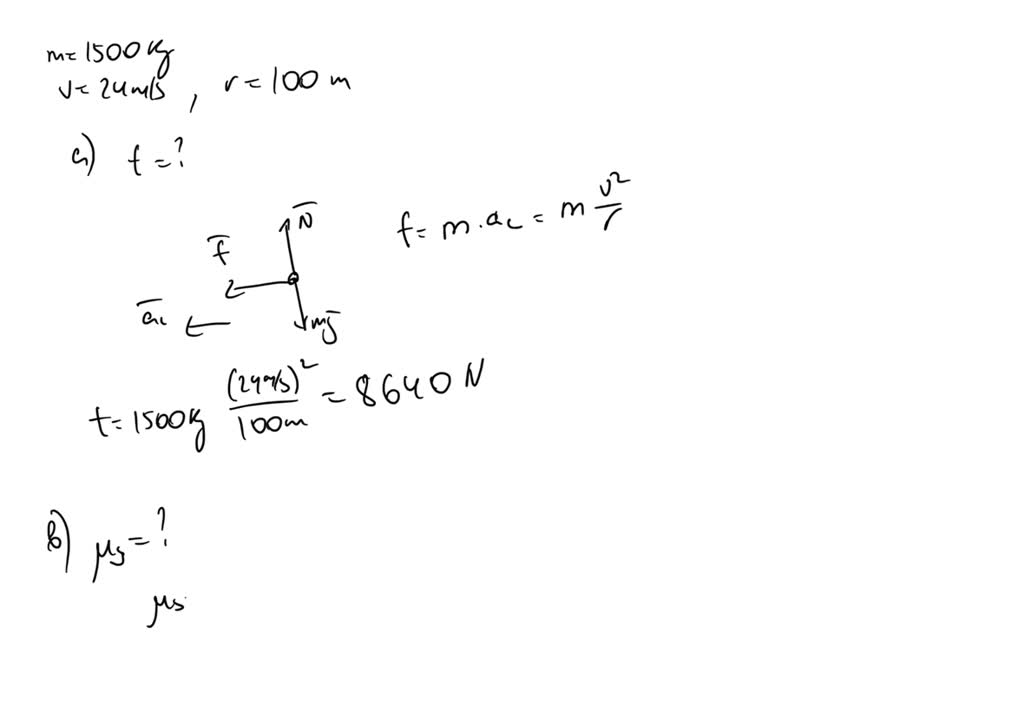 m = 1500 kg
v = 24 m/s , r = 100 m
a) f = ?
N̅
f̅
a̅c
mg̅
f = m · ac = m v²/r
f = 1500 kg (24 m/s)²/100 m = 8640 N
b) μs = ?
μs